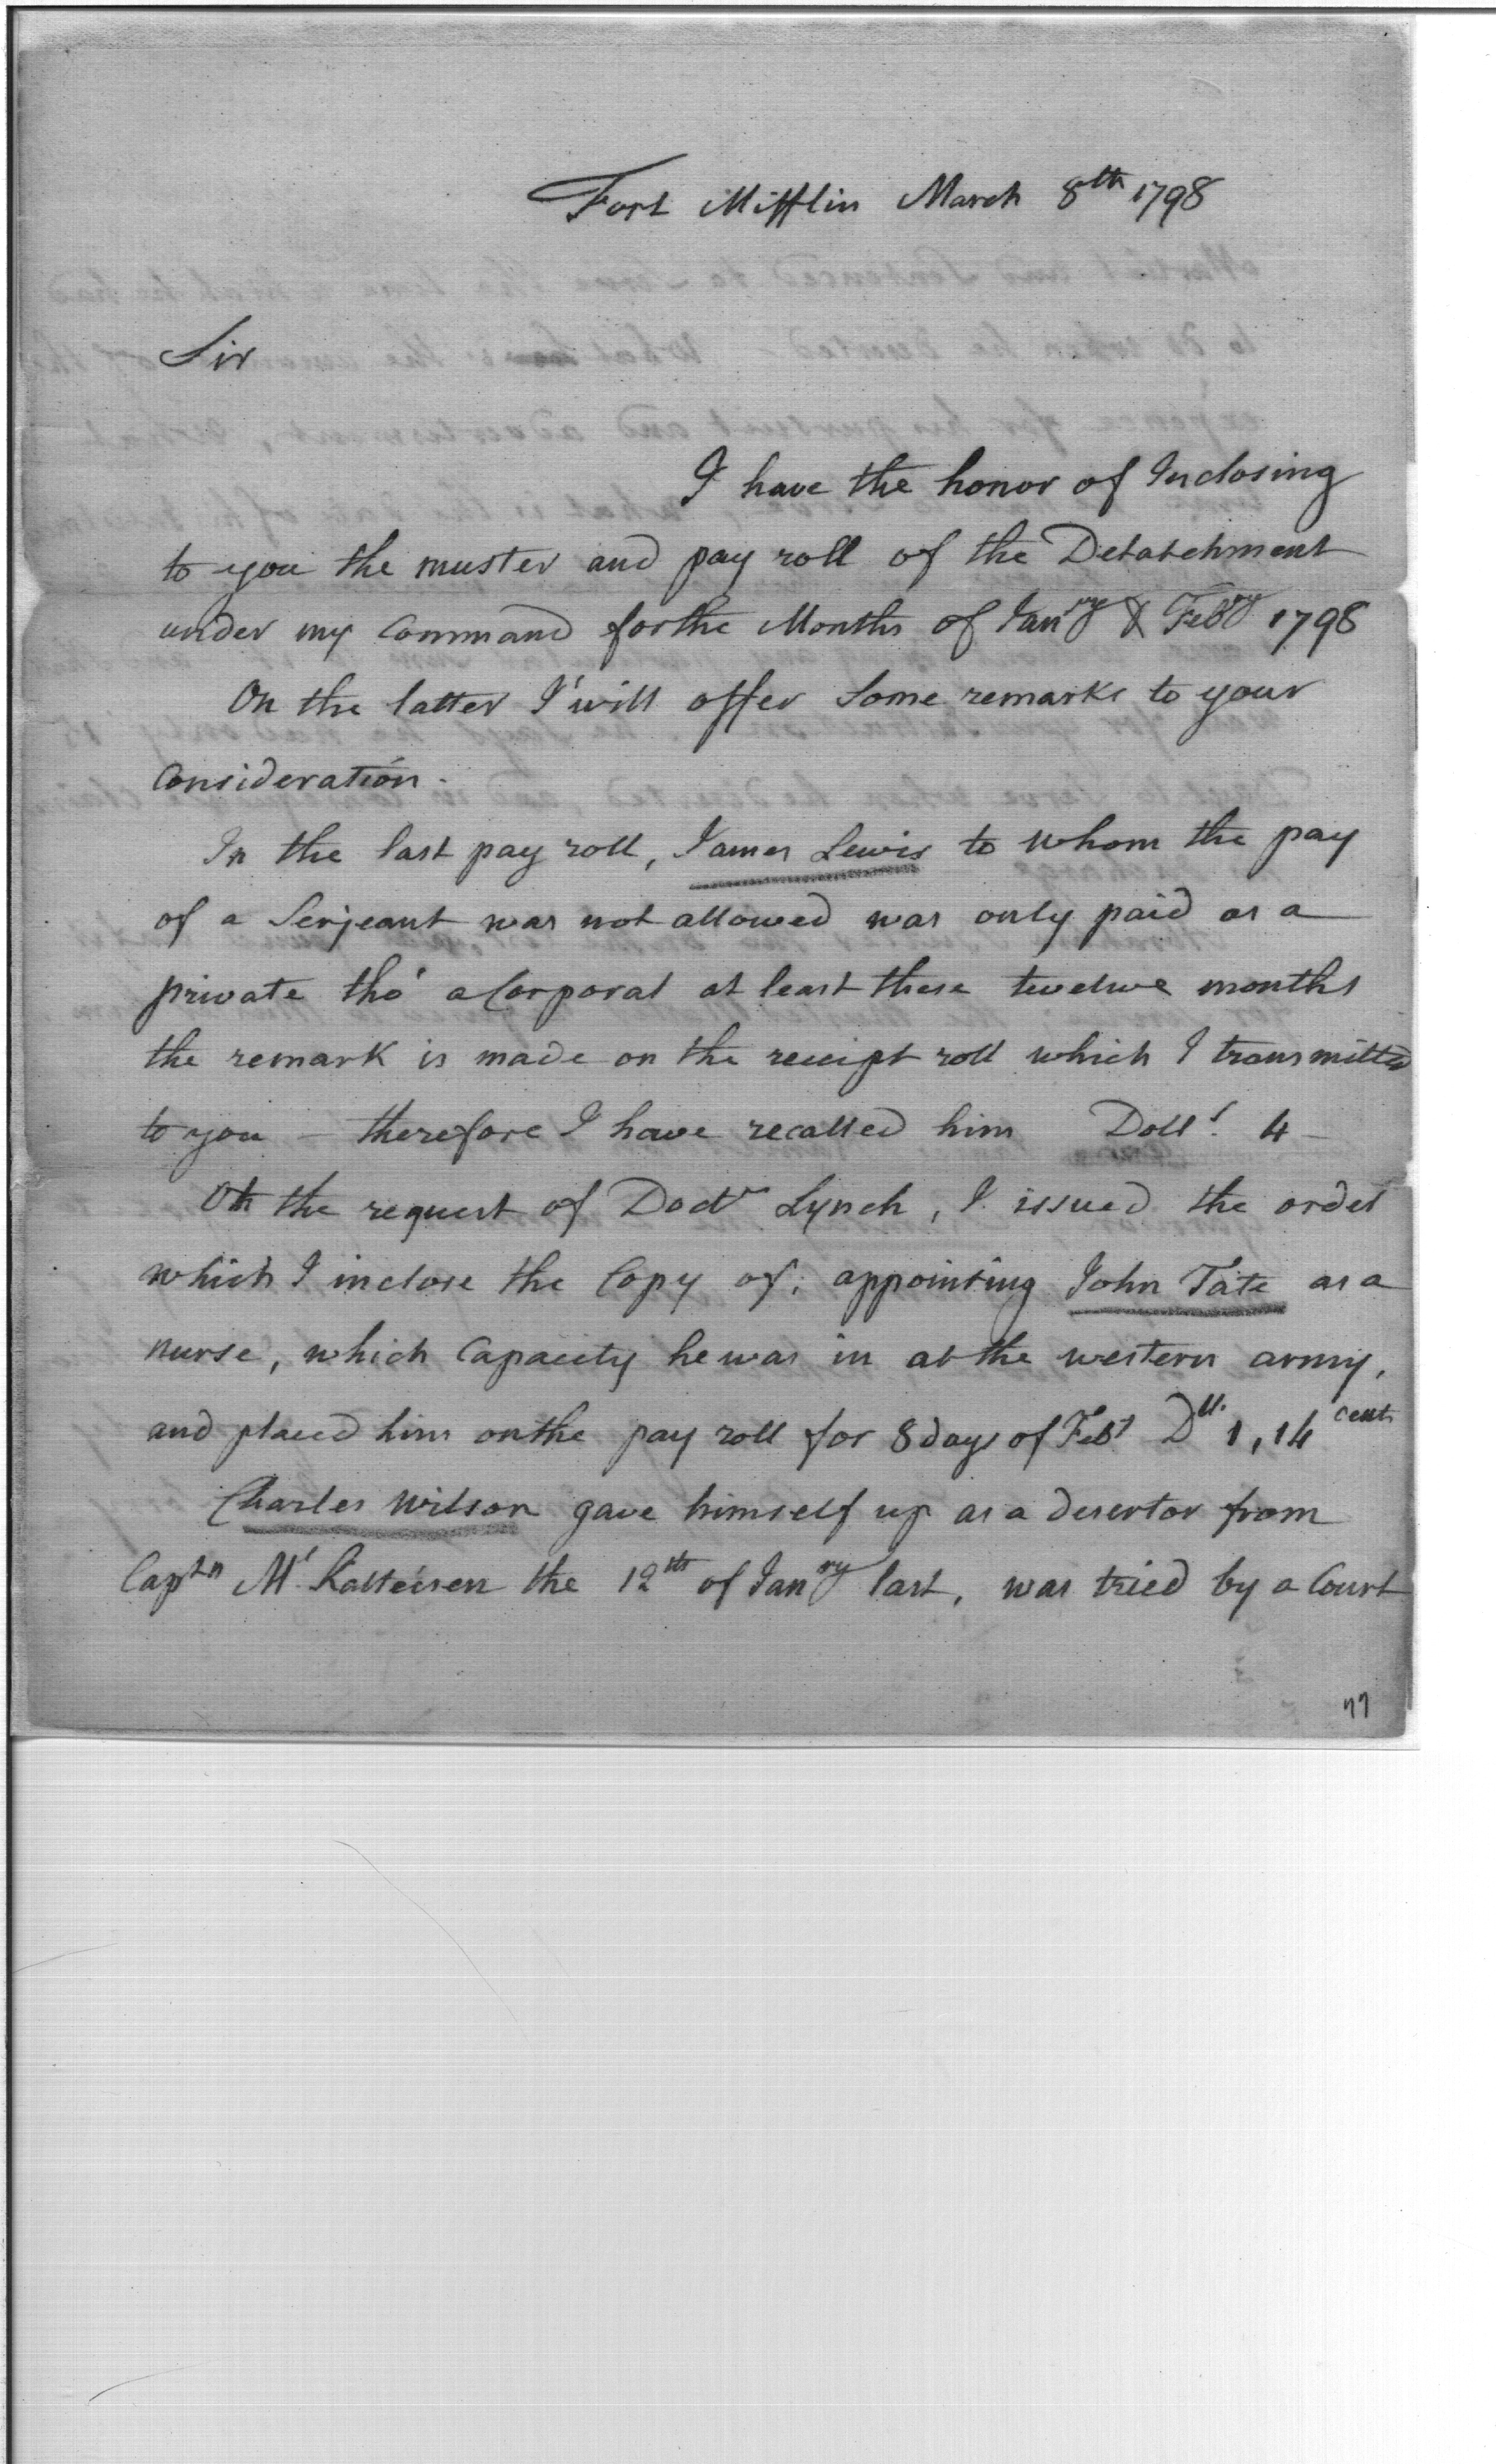 Fort Mifflin March 8th 1798
Sir
I have the honor of Inclosing
to you the muster and pay roll of the Detatchment
under my Command for the Months of Janry & Febry 1798
On the latter I will offer Some remarks to your
Consideration.
In the last pay roll, James Lewis to whom the pay
of a Serjeant was not allowed was only paid as a
private tho' a Corporal at least these twelwe months
the remark is made on the receipt roll which I transmitted
to you – therefore I have recalled him Dolls. 4 –
On the request of Doctr Lynch, I issued the order
which I inclose the Copy of; appointing John Tate as a
nurse, which Capacity he was in at the western army,
and placed him on the pay roll for 8 days of Feby Dll. 1,14 cents
Charles Wilson gave himself up as a desertor from
Captn Mr Kalteisen the 12th of Janry last, was tried by a Court
77